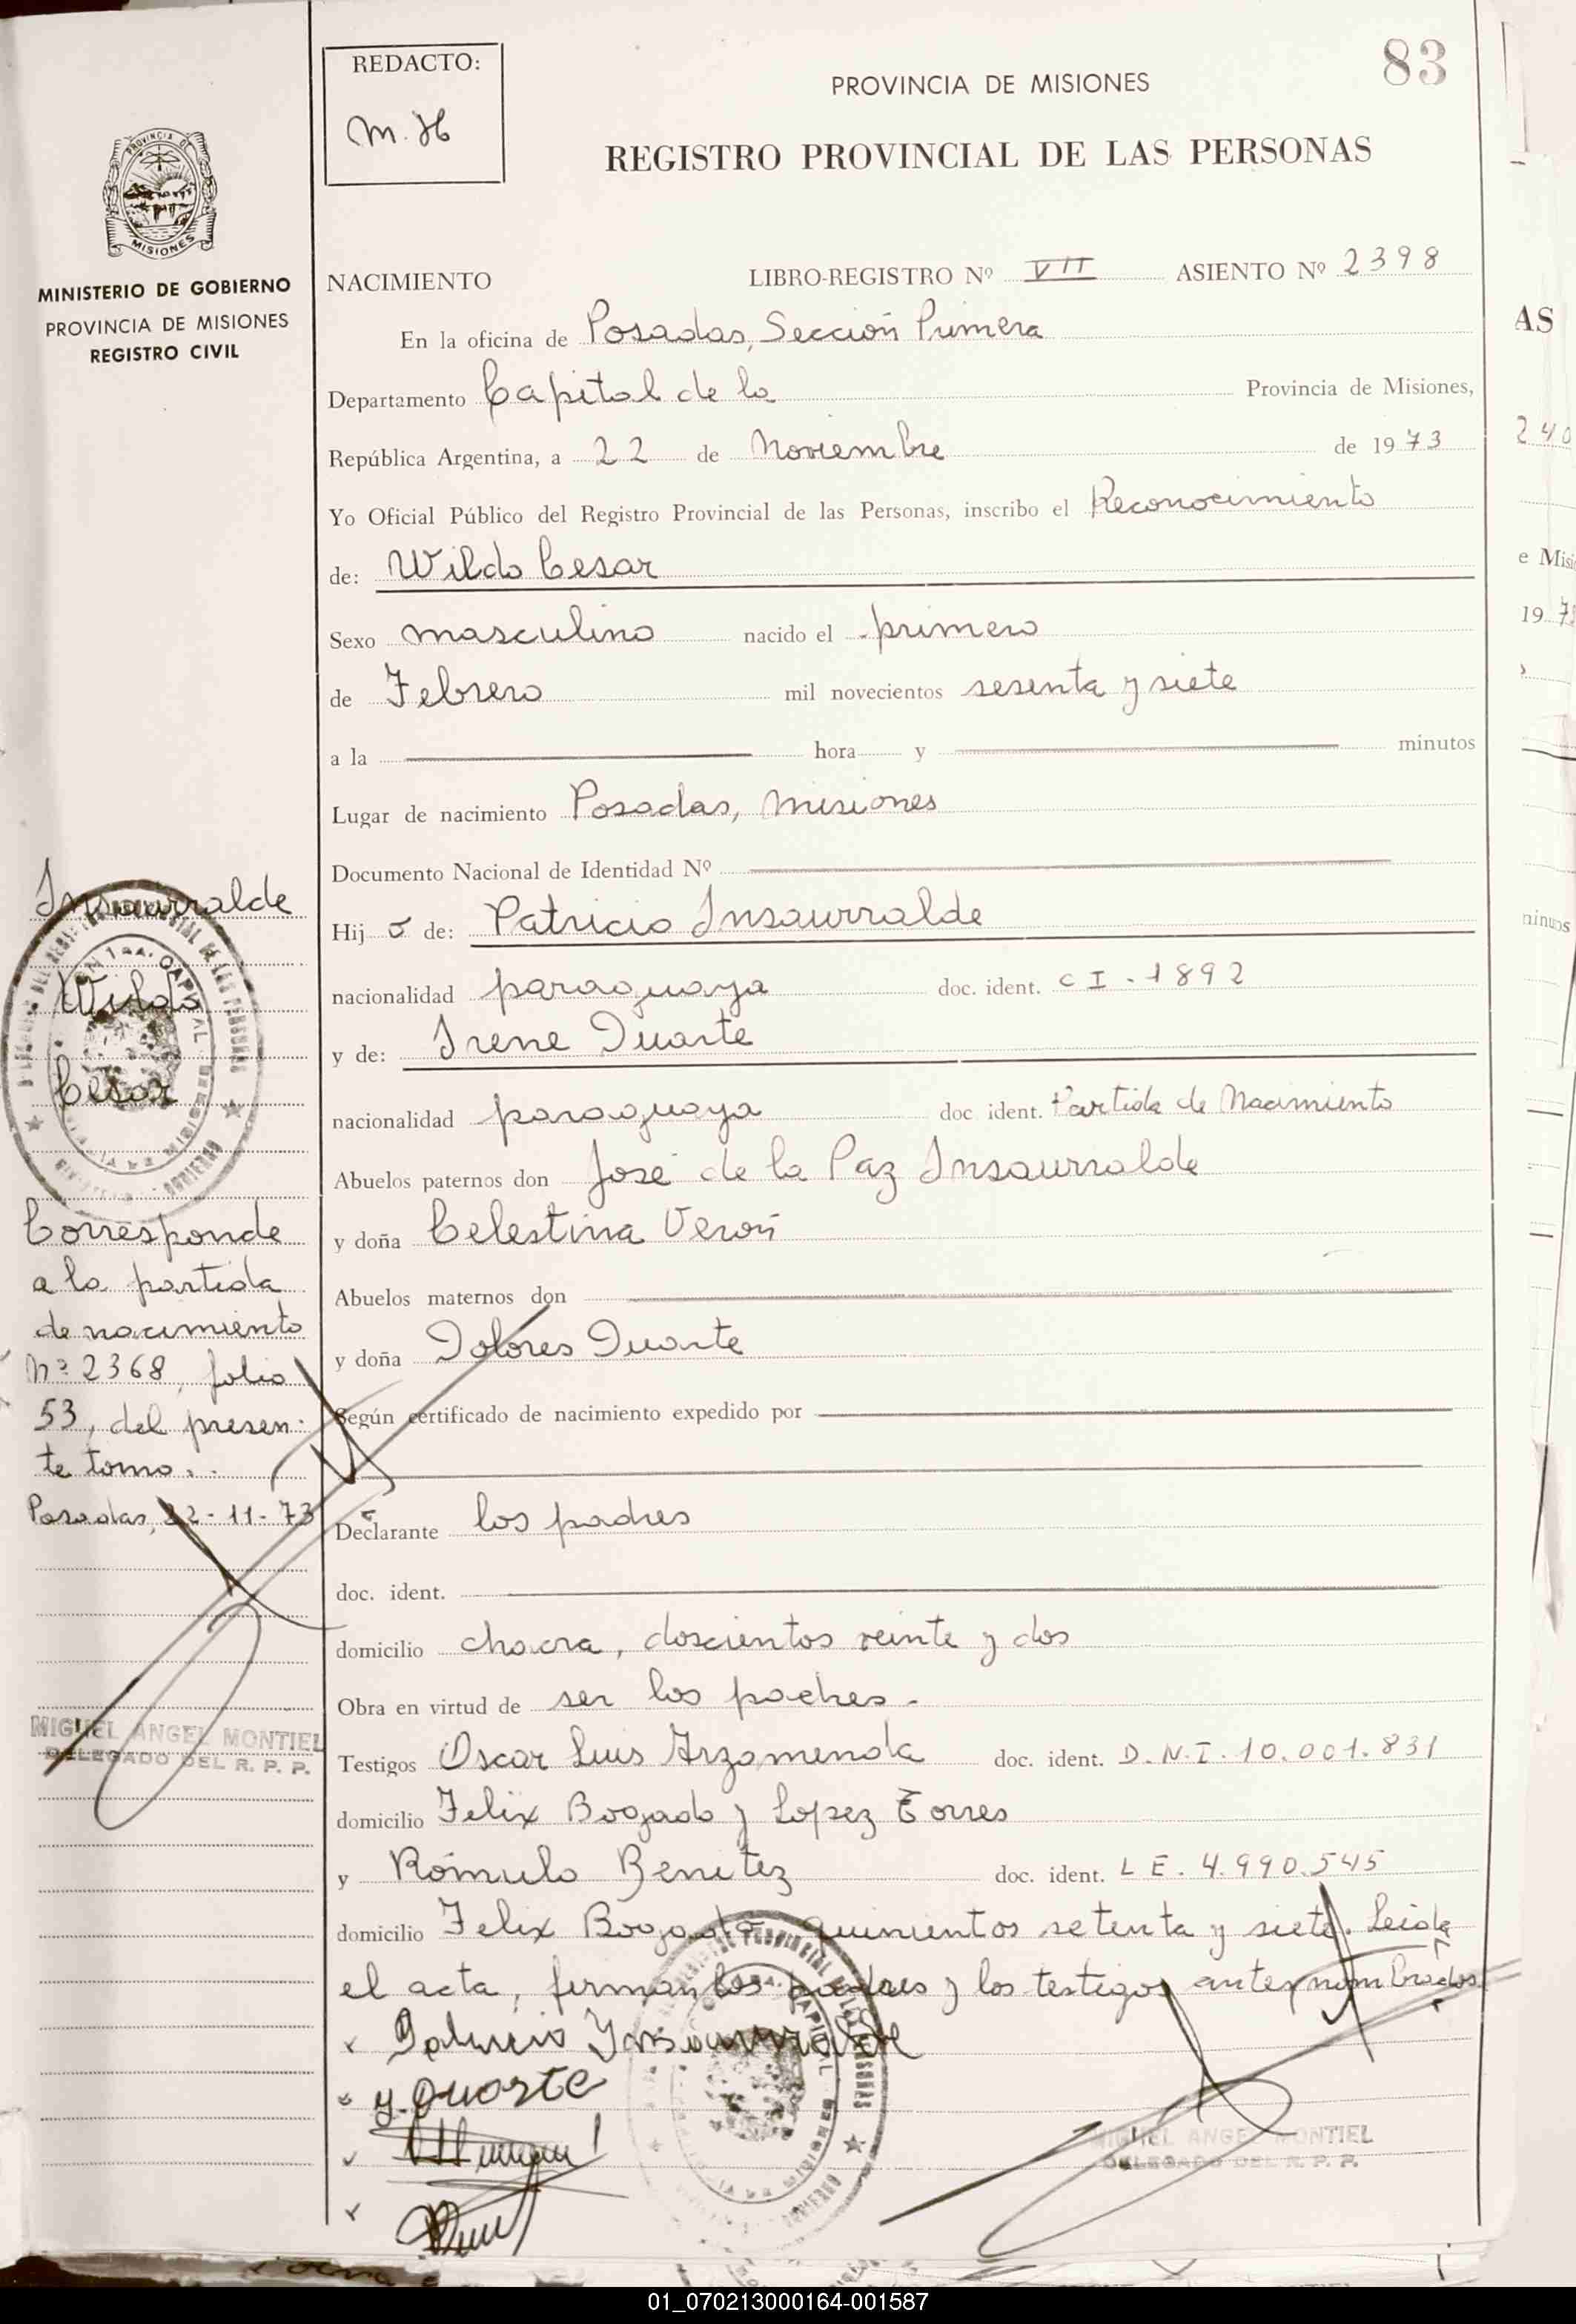 83
REDACTO:
M. H
PROVINCIA DE MISIONES
REGISTRO PROVINCIAL DE LAS PERSONAS
PROVINCIA DE
MISIONES
MINISTERIO DE GOBIERNO
PROVINCIA DE MISIONES
REGISTRO CIVIL
NACIMIENTO LIBRO-REGISTRO Nº VII ASIENTO Nº 2398
En la oficina de Posadas, Sección Primera
Departamento Capital de la Provincia de Misiones,
República Argentina, a 22 de Noviembre de 1973
Yo Oficial Público del Registro Provincial de las Personas, inscribo el Reconocimiento
de: Wildo Cesar
Sexo masculino nacido el primero
de Febrero mil novecientos sesenta y siete
a la hora y minutos
Lugar de nacimiento Posadas, Misiones
Documento Nacional de Identidad Nº
Hijo de: Patricio Insaurralde
nacionalidad paraguaya doc. ident. C I - 1892
y de: Irene Duarte
nacionalidad paraguaya doc ident. Partida de Nacimiento
Abuelos paternos don José de la Paz Insaurralde
y doña Celestina Verón
Abuelos maternos don
y doña Dolores Duarte
Según certificado de nacimiento expedido por
Declarante los padres
doc. ident.
domicilio chacra, doscientos veinte y dos
Obra en virtud de ser los padres.
Testigos Oscar Luis Arzamenda doc. ident. D.N.I. 10.001.831
domicilio Felix Bogado y Lopez Torres
y Rómulo Benitez doc. ident. L E. 4.990.545
domicilio Felix Bogado quinientos setenta y siete. Leida
el acta, firman los padres y los testigos antes nombrados
Patricio Ynsaurralde
y. Duarte
MIGUEL ANGEL MONTIEL
DELEGADO DEL R. P. P.
Insaurralde
Wildo
Cesar
Corresponde
a la partida
de nacimiento
Nº 2368, folio
53, del presen-
te tomo.
Posadas, 22-11-73
MIGUEL ANGEL MONTIEL
DELEGADO DEL R. P. P.
AS
240
e Misi
19 7
minutos
01_070213000164-001587